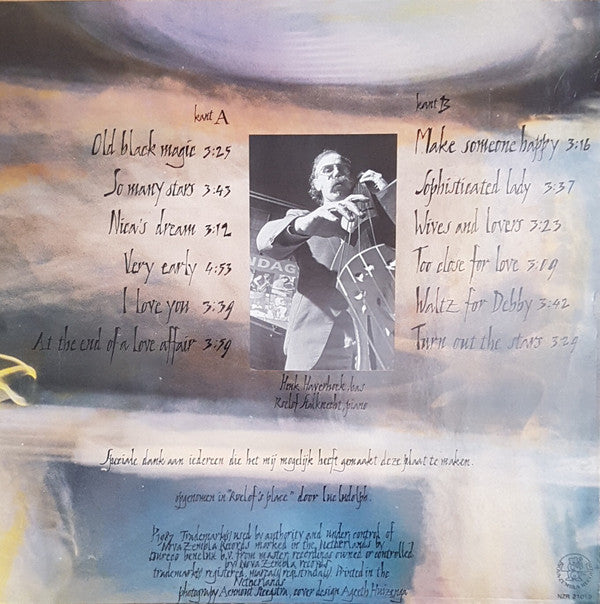 kant A
Old black magic 3:25
So many stars 3:43
Nica's dream 3:12
Very early 4:53
I love you 3:39
At the end of a love affair 3:59
kant B
Make someone happy 3:16
Sophisticated lady 3:37
Wives and lovers 3:23
Too close for love 3:09
Waltz for Debby 3:42
Turn out the stars 3:29
NDAG
Henk Haverhoek, bas
Roelof Stalknecht, piano
Speciale dank aan iedereen die het mij mogelijk heeft gemaakt deze plaat te maken.
opgenomen in "Roelof's place" door Luc Ludolph.
1987 Trademark(s) used by authority and under control of
Nova Zembla Records marked in the Netherlands by
benelux b.v. from master recordings owned or controlled
by Nova Zembla records
trademark(s) registered. marca(s) registrada(s). Printed in the
Netherlands
photography Steegstra, cover design Ageeth
NZR 21010